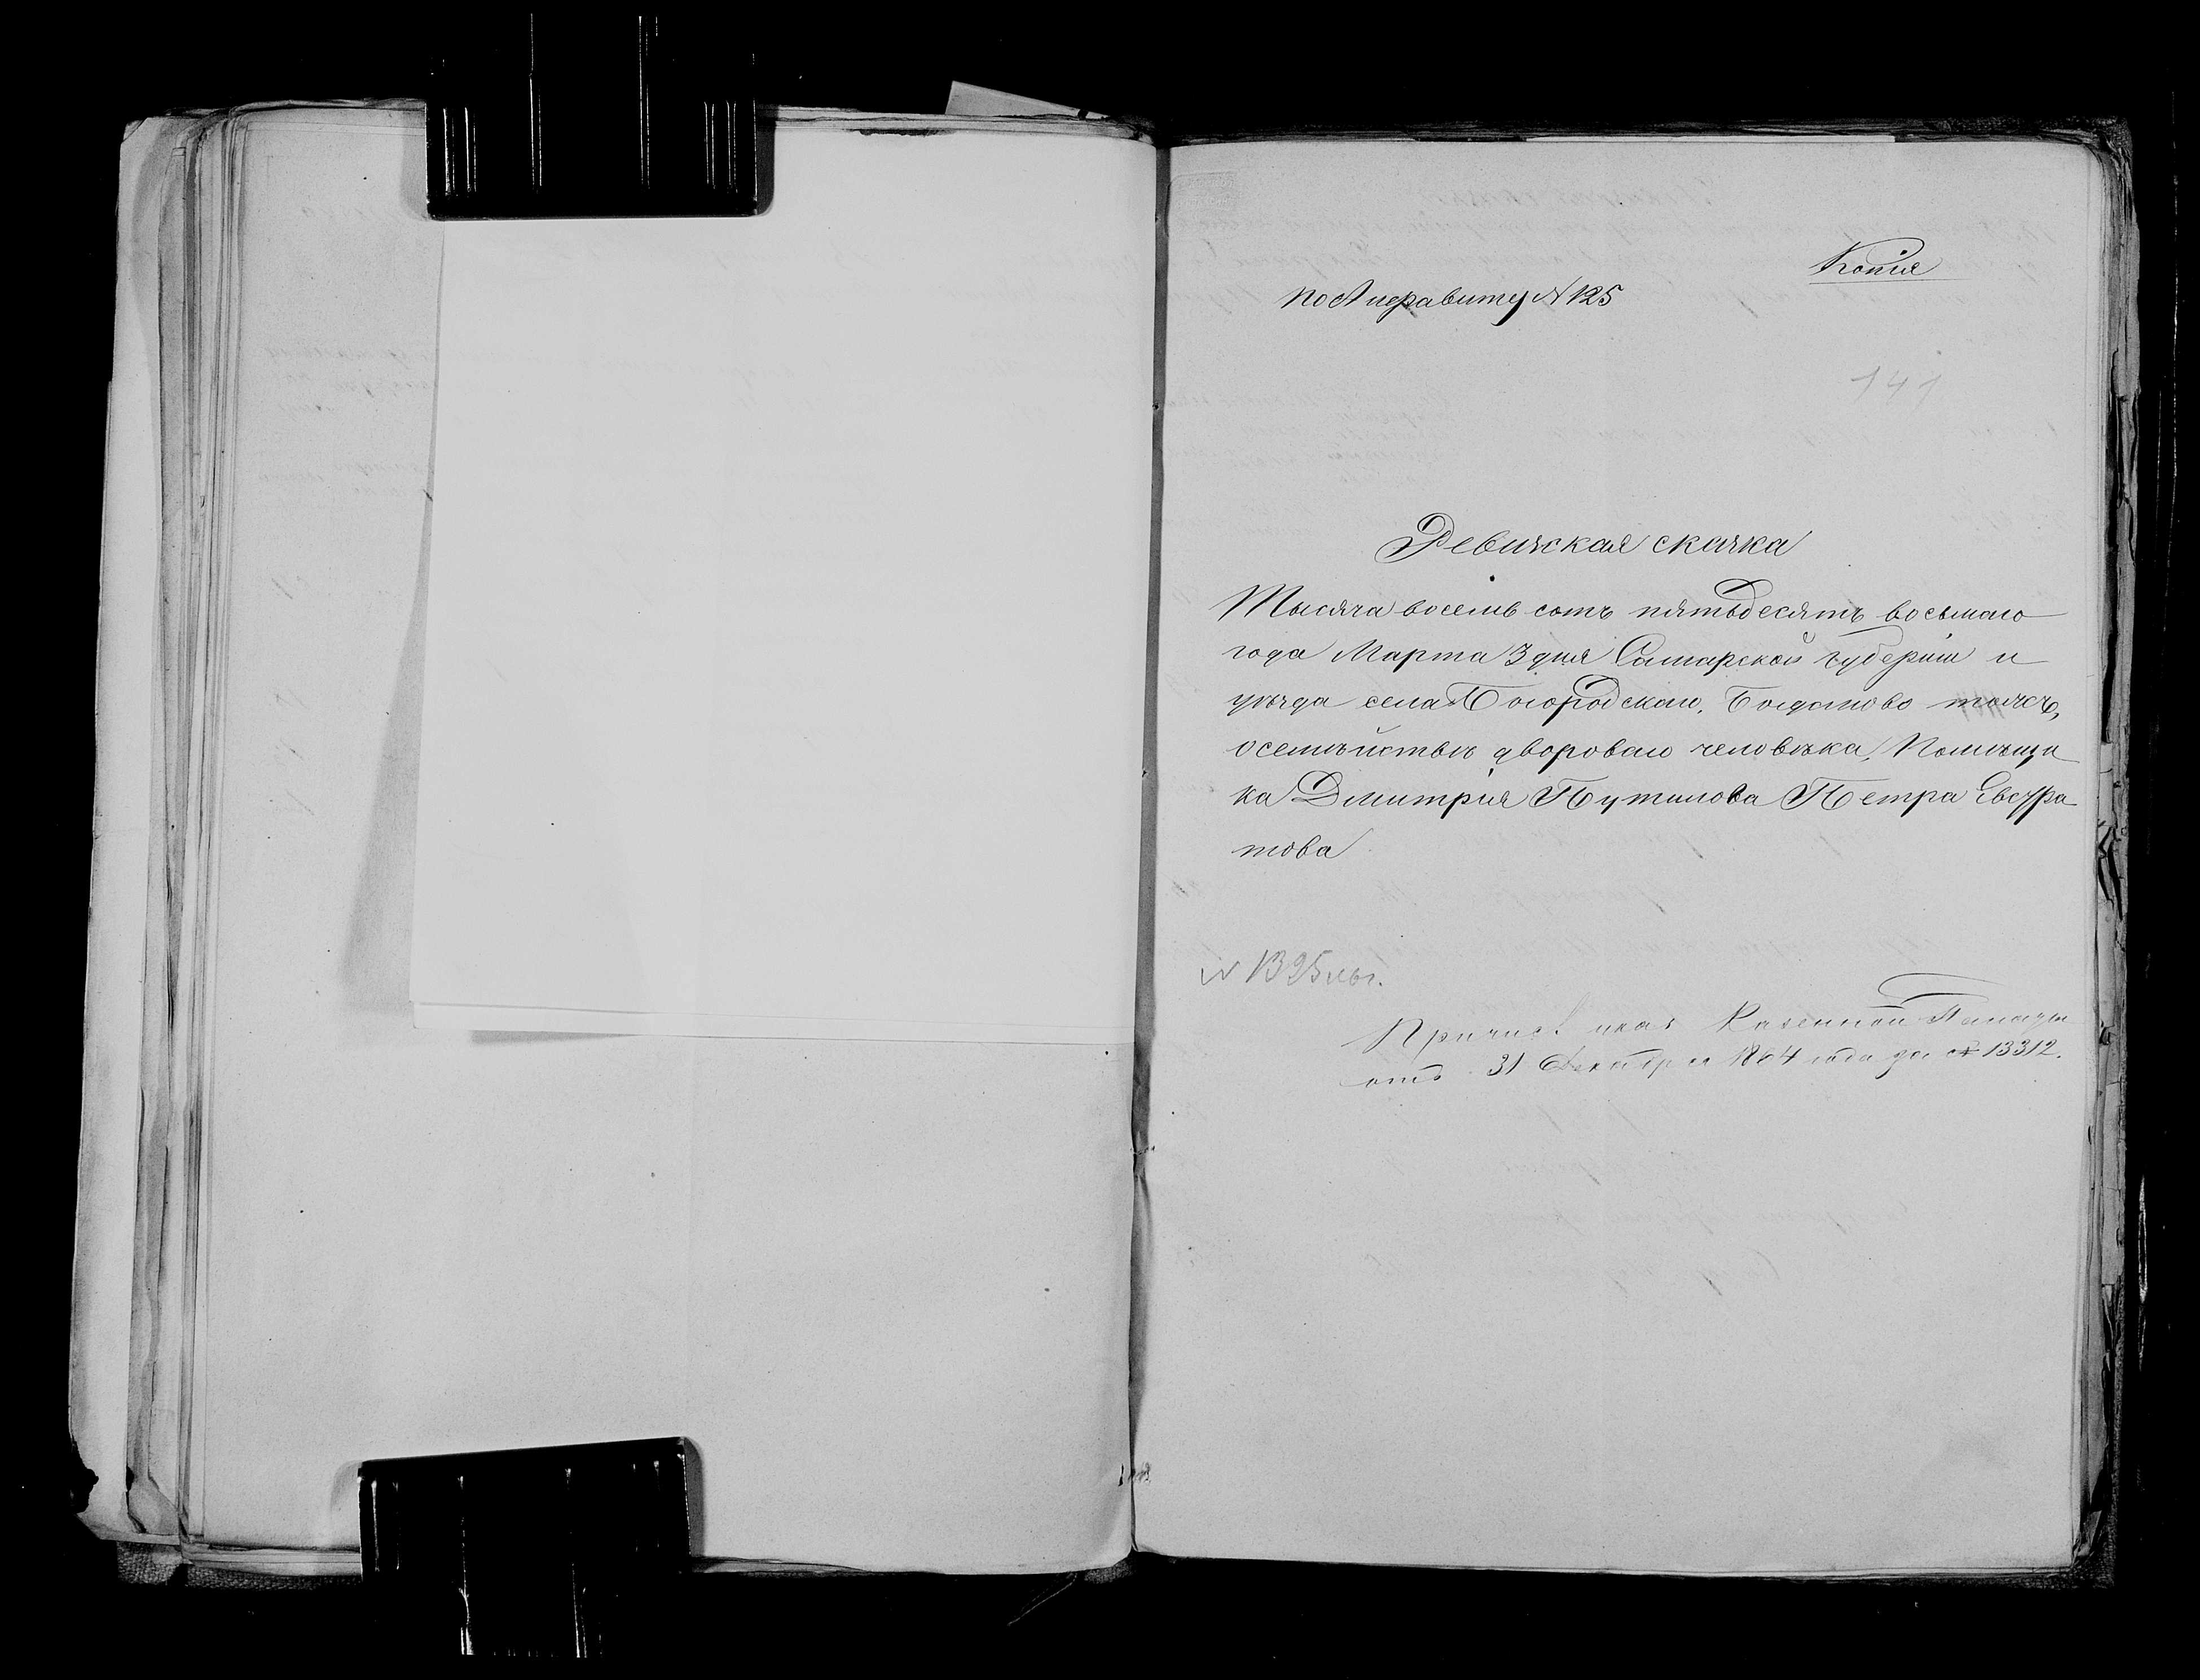 Копія
по Алфавиту N 125
141
Ревизская сказка
Тысяча восемь сотъ пятьдесятъ восьмаго
года Марта 3 дня Самарской губерніи и
уѣзда села Богородскаго, Богданово тожъ,
о семѣйствѣ двороваго человѣка, Помѣщи
ка Дмитрія Путилова Петра Евстра
това
N 1325
Казенной Палаты
отъ 31 Декабря 1864 года за № 13312.